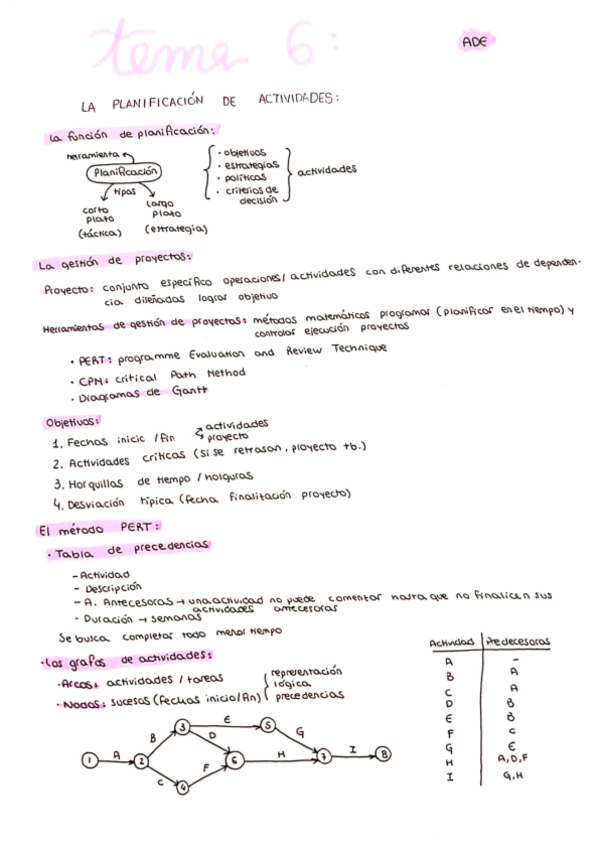 tema 6:
ADE
LA PLANIFICACIÓN DE ACTIVIDADES:
La función de planificación:
herramienta
Planificación
tipos
corto plazo (táctica)
largo plazo (estrategia)
· objetivos
· estrategias
· políticas
· criterios de decisión
actividades
La gestión de proyectos:
Proyecto: conjunto específico operaciones/actividades con diferentes relaciones de dependen-
cia diseñadas lograr objetivo
Herramientas de gestión de proyectos: métodos matemáticos programar (planificar en el tiempo) y
controlar ejecución proyectos
· PERT: programme Evaluation and Review Technique
· CPM: critical Path Method
· Diagramas de Gantt
Objetivos:
1. Fechas inicio/fin
actividades
proyecto
2. Actividades críticas (si se retrasan, proyecto tb.)
3. Horquillas de tiempo / holguras
4. Desviación típica (fecha finalización proyecto)
El método PERT:
· Tabla de precedencias
- Actividad
- Descripción
- A. Antecesoras → una actividad no puede comenzar hasta que no finalicen sus
actividades antecesoras
- Duración → semanas
Se busca completar todo menor tiempo
· Los grafos de actividades:
· Arcos: actividades / tareas
· Nodos: sucesos (fechas inicio/fin)
representación
lógica
precedencias
1 A 2 B 3 C 4 D E 5 F 6 G H 7 I 8
Actividad Predecesoras
A -
B A
C A
D B
E B
F C
G E
H A,D,F
I G,H